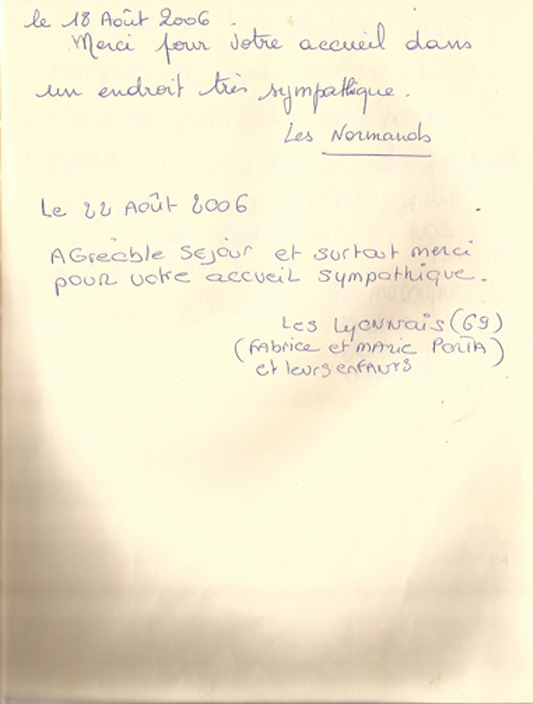 le 18 Août 2006.
Merci pour votre accueil dans
un endroit très sympathique.
Les Normands
Le 22 Août 2006
AGréable Séjour et surtout merci
pour votre accueil sympathique.
Les Lyonnais (69)
(Fabrice et Marie PORTA)
et leurs enfants